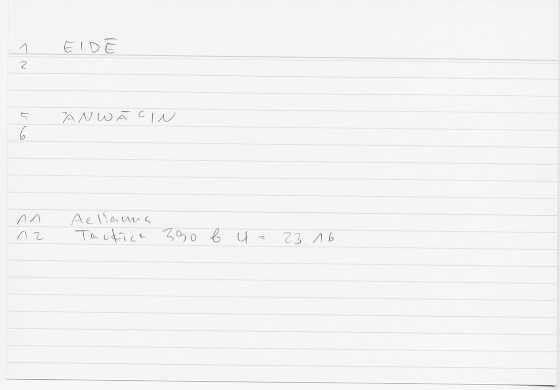 1 EIDĒ
2
5 ANWĀCIN
6
11 Aelianus
12 Tactica 390 b 4 = 23.16